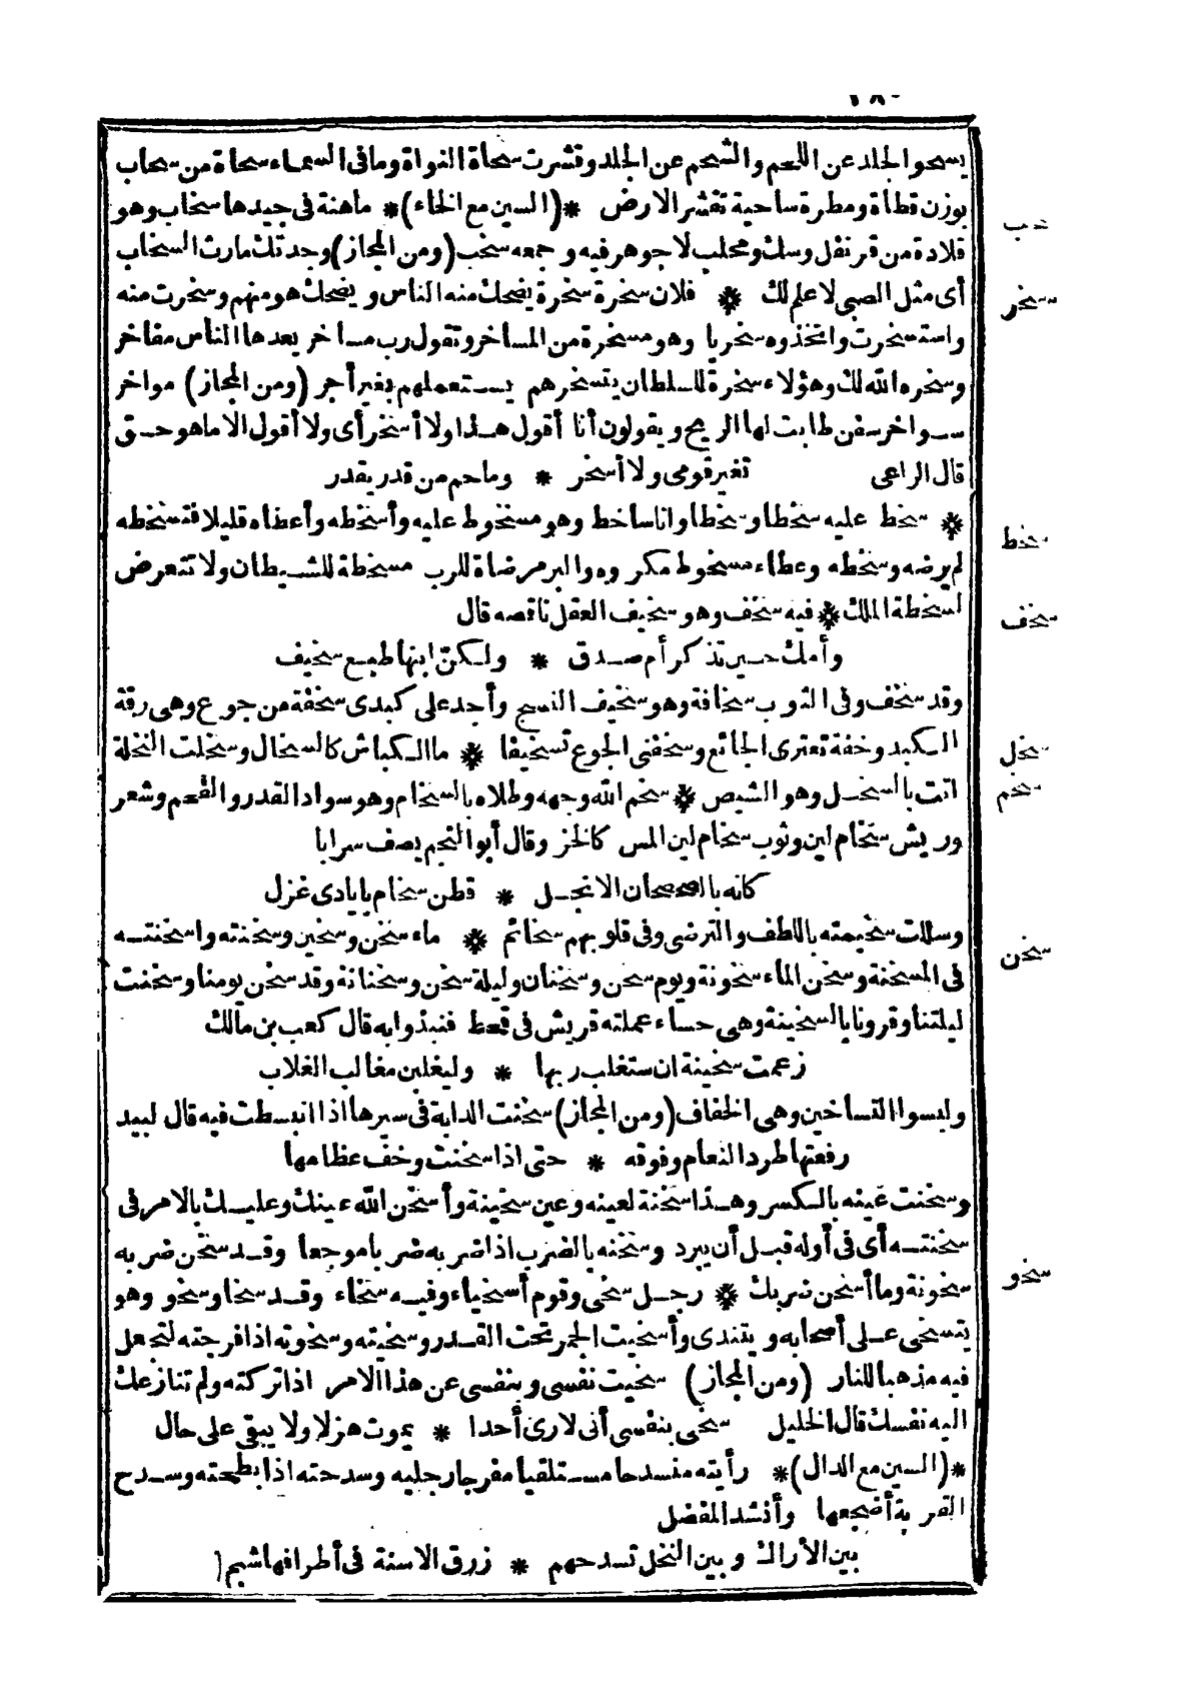 ٢٨٠
يسحو الجلد عن اللحم والشحم عن الجلد وقشرت سحاة النواة وما فى السماء سحاة من سحاب
بوزن قطاة ومطرة ساحية تقشر الارض * (السين مع الخاء) * ماهنة فى جيدها سخاب وهو
قلادة من قرنفل وسك ومحلب لا جوهر فيه وجمعه سخب (ومن المجاز) وجدتك مارث السخاب
أى مثل الصبى لا علم لك * فلان سخرة سخرة يضحك منه الناس ويضحك هو منهم وسخرت منه
واستسخرت واتخذوه سخريا وهو مسخرة من المساخر وتقول رب مساخر يعدها الناس مفاخر
وسخره الله لك وهؤلاء سخرة للسلطان يتسخرهم يستعملهم بغير أجر (ومن المجاز) مواخر
سواخر سفن طابت لها الريح ويقولون أنا أقول هذا ولا أسخر أى ولا أقول الا ما هو حق
قال الراعى تغير قومى ولا أسخر * وما حم من قدر يقدر
* سخط عليه سخطا وسخطا وانا ساخط وهو مسخوط عليه وأسخطه وأعطاه قليلا فتسخطه
لم يرضه وسخطه وعطاء مسخوط مكروه والبر مرضاة للرب مسخطة للشيطان ولا تتعرض
لسخطة الملك * فيه سخف وهو سخيف العقل ناقصه قال
وأمك حين تذكر أم صدق * ولكن ابنها طبع سخيف
وقد سخف وفى الثوب سخافة وهو سخيف النسج وأجد على كبدى سخفة من جوع وهى رقة
الكبد وخفة تعترى الجائع وسخفنى الجوع تسخيفا * ما الكباش كالسخال وسخلت النخلة
اتت بالسخل وهو الشيص * سخم الله وجهه وطلاه بالسخام وهو سواد القدر والفحم وشعر
وريش سخام لين وثوب سخام لين المس كالخز وقال أبو النجم يصف سرابا
كانه بالصحصحان الانجل * قطن سخام بايادى غزل
وسللت سخيمته باللطف والترضى وفى قلوبهم سخائم * ماء سخن وسخين وسخنته واسخنته
فى المسخنة وسخن الماء سخونة ويوم سخن وسخنان وليلة سخن وسخنانة وقد سخن يومنا وسخنت
ليلتنا وقرونا بالسخينة وهى حساء عملته قريش فى قحط فنبذوا به قال كعب بن مالك
زعمت سخينة ان ستغلب ربها * وليغلبن مغالب الغلاب
ولبسوا التساخين وهى الخفاف (ومن المجاز) سخنت الدابة فى سيرها اذا انبسطت فيه قال لبيد
رفعتها طرد النعام وفوقه * حتى اذا سخنت وخف عظامها
وسخنت عينه بالكسر وهذا سخنة لعينه وعين سخينة وأسخن الله عينك وعليك بالامر فى
سخنته أى فى أوله قبل أن يبرد وسخنه بالضرب اذا ضربه ضربا موجعا وقد سخن ضربه
سخونة وما أسخن ضربك * رجل سخى وقوم أسخياء وفيه سخاء وقد سخا وسخو وهو
يتسخى على أصحابه ويتندى وأسخيت الجمر تحت القدر وسخيته وسخوته اذا فرجته لتجعل
فيه مذهبا للنار (ومن المجاز) سخيت نفسى وبنفسى عن هذا الامر اذا تركته ولم تنازعك
اليه نفسك قال الخليل سخى بنفسى أنى لا رى أحدا * يموت هزلا ولا يبقى على حال
* (السين مع الدال) * رأيته منسدحا مستلقيا مفرجا رجليه وسدحته اذا بطحته وسدح
القربة أضجعها وأنشد المفضل
بين الأراك وبين النخل تسدحهم * زرق الاسنة فى أطرافها شبم
سخر
سخط
سخف
سخل
سخم
سخن
سخو